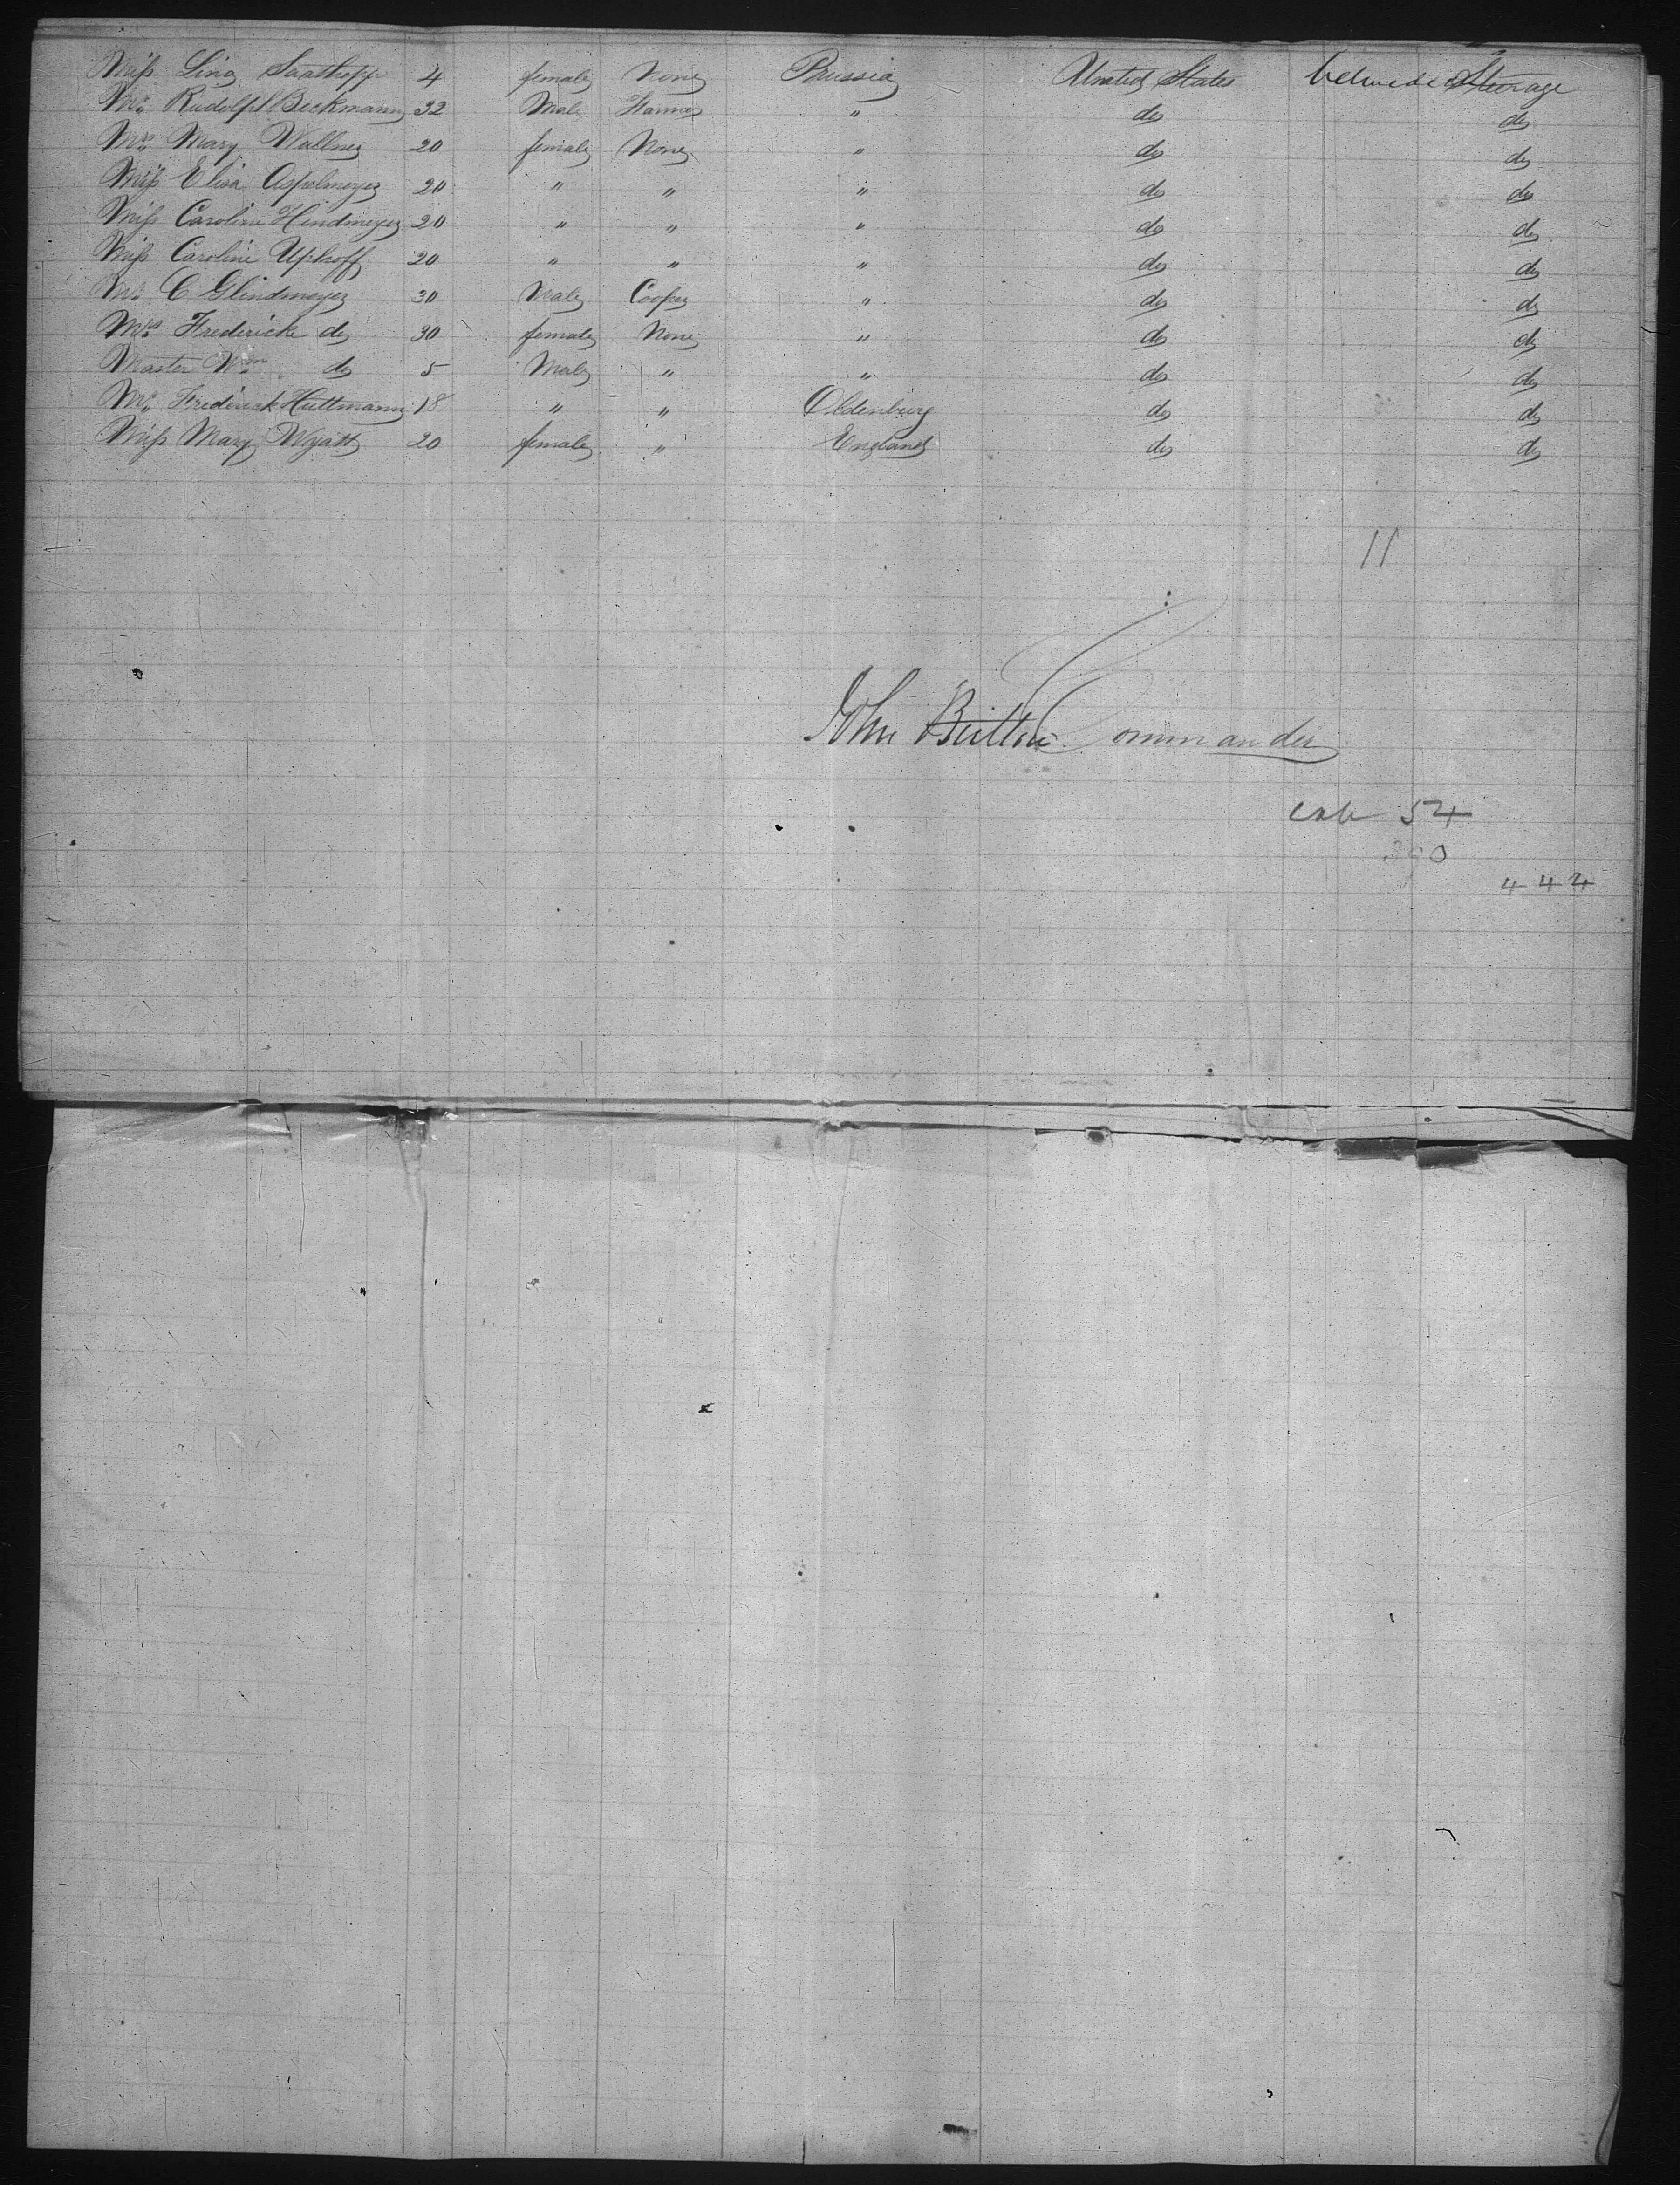 Miss Lina Saathoff 4 female None Prussia United States between decks Steerage
Mr. Rudolph Beckmann 32 Male Farmer " do do
Mrs. Mary Wallner 20 female None " do do
Miss Elisa Aspelmeyer 20 " " " do do
Miss Caroline Hindmeyer 20 " " " do do
Miss Caroline Uphoff 20 " " " do do
Mr. C Glindmeyer 30 Male Cooper " do do
Mrs. Frederick do 30 female None " do do
Master Wm do 5 Male " " do do
Mr. Frederick Huttmann 18 " " Oldenburg do do
Miss Mary Wyatt 20 female " England do do
11
John Button Commander
cab 54
390
444